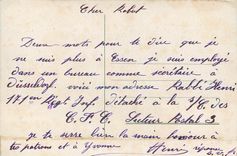 Cher Robert
Deux mots pour te dire que je
ne suis plus à Essen je suis employé
dans un bureau comme secrétaire à
Düsseldorf, voici mon adresse Rabbé Henri
171em Régt Inf. détaché à la S/C des
C. F. C. Secteur Postal 3
je te serre bien la main bonjour à
tes patrons et à Yvonne
Henri réponse